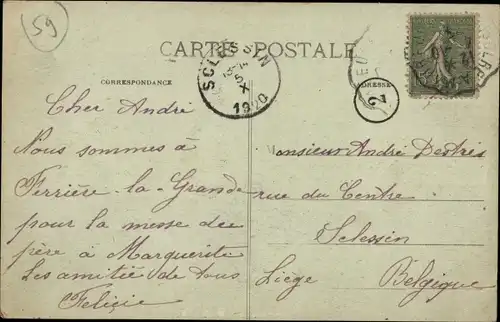 59
CARTE POSTALE
CORRESPONDANCE
ADRESSE
SCLESSIN
X
1920
2
Cher André
Nous sommes à
Ferrière-la-Grande
pour la messe de
père à Marguerite
Les amitiés de tous
Felicie
Monsieur André Destrés
rue du Centre
Sclessin
Liège Belgique